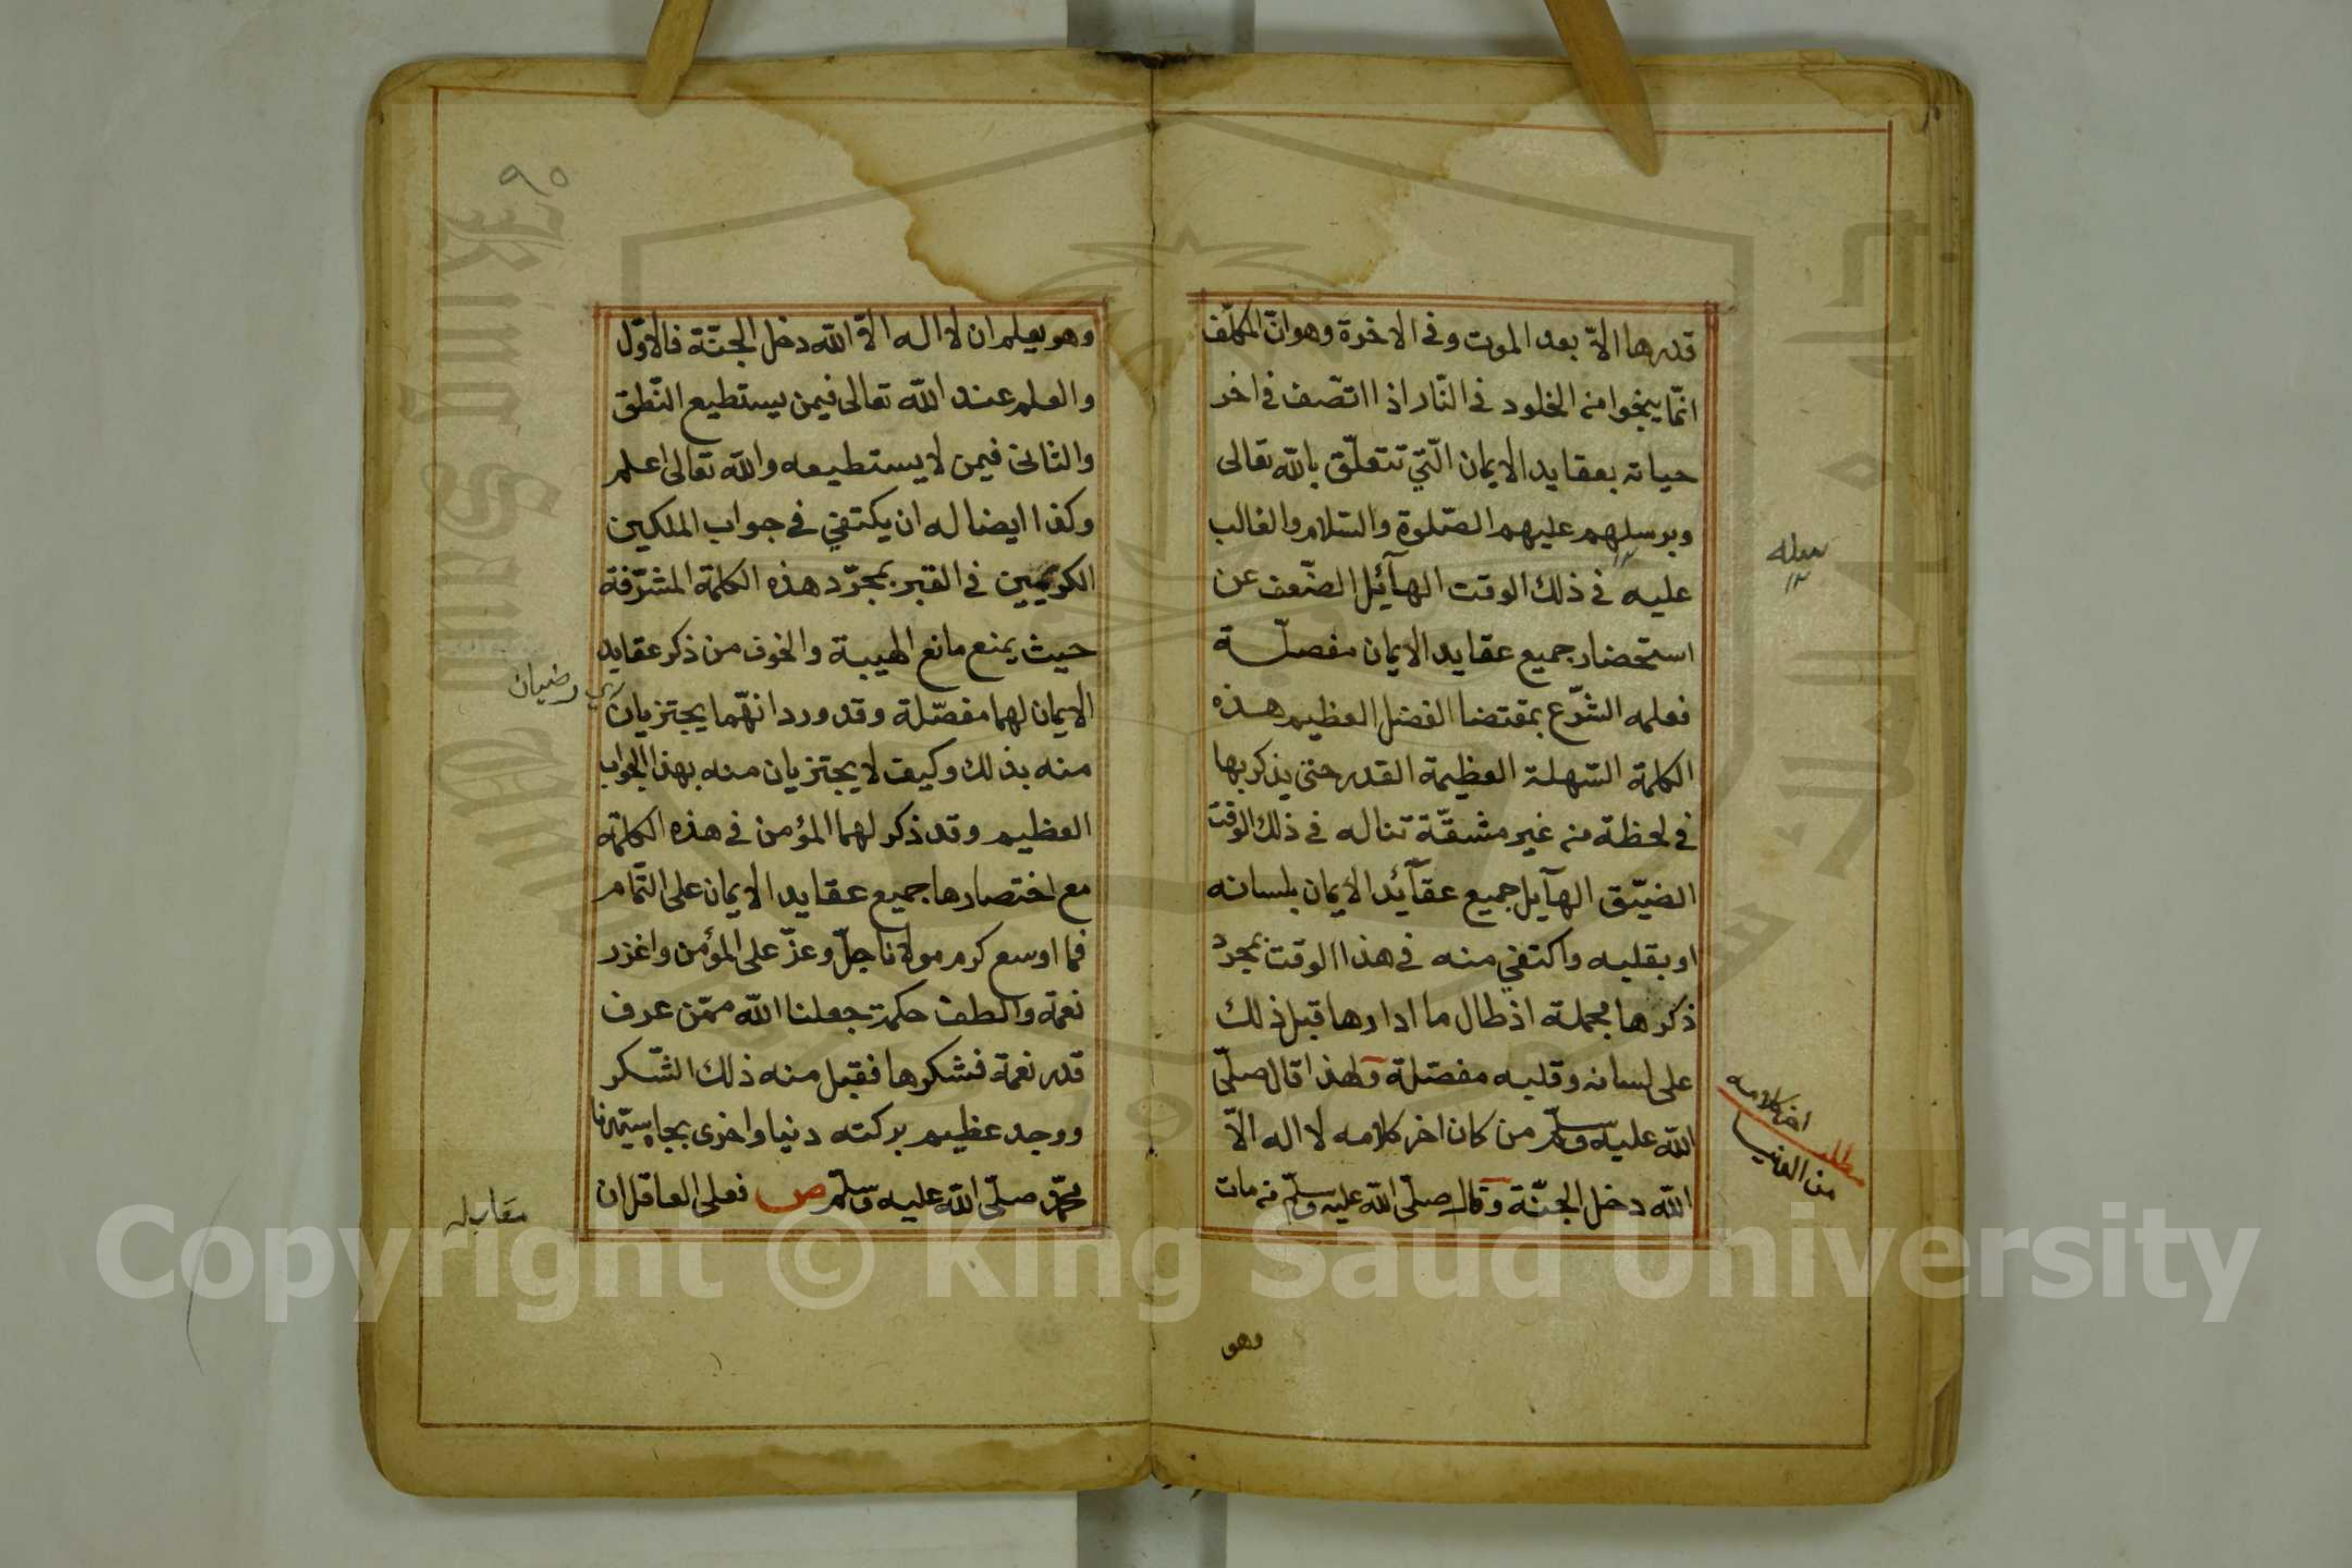 قدرها الا بعد الموت وفى الاخرة وهو انّ المكلّف
انّما ينجوا من الخلود فى النّار اذا اتّصف فى اخر
حياته بعقايد الايمان الّتي تتعلّق بالله تعالى
وبرسلهم عليهم الصّلوة والسّلام والغالب
عليه فى ذلك الوقت الهآئل الضّعف عن
استحضار جميع عقايد الايمان مفصّلة
فعلمه الشّرع بمقتضا الفضل العظيم هذه
الكلمة السّهلة العظيمة القدر حتى يذكر بها
فى لحظة من غير مشقّة تناله فى ذلك الوقت
الضيّق الهآيل جميع عقآئد الايمان بلسانه
او بقلبه واكتفي منه فى هذا الوقت بمجرد
ذكرها مجملة اذ طال ما ادارها قبل ذلك
على لسانه وقلبه مفصّلة ولهذا قال صلّى
الله عليه وسلّم من كان اخر كلامه لا اله الاّ
الله دخل الجنّة وقال صلّى الله عليه وسلّم من مات
اخر كلامه
مطلب
من الدنيا
وهو
٩٠
وهو يعلم ان لا اله الاّ الله دخل الجنّة فالاوّل
والعلم عند الله تعالى فيمن يستطيع النّطق
والثانى فيمن لا يستطيعه والله تعالى اعلم
وكذا ايضا له ان يكتفي فى جواب الملكين
الكريمين فى القبر بمجرّد هذه الكلمة المشرّفة
حيث يمنع مانع الهيبة والخوف من ذكر عقايد
الايمان لهما مفصّلة وقد ورد انّهما يجتزيان
منه بذلك وكيف لا يجتزيان منه بهذا الجواب
العظيم وقد ذكر لهما المؤمن فى هذه الكلمة
مع اختصارها جميع عقايد الايمان على التّمام
فما اوسع كرم مولانا جلّ وعزّ على المؤمن واغزر
نعمه والطف حكمته جعلنا الله ممّن عرف
قدر نعمة فشكرها فقبل منه ذلك الشّكر
ووجد عظيم بركته دنيا واخرى بجاه سيّدنا
محمّد صلّى الله عليه وسلّم ص فعلى العاقل ان
اي رضيان
مقابله
Copyright © King Saud University